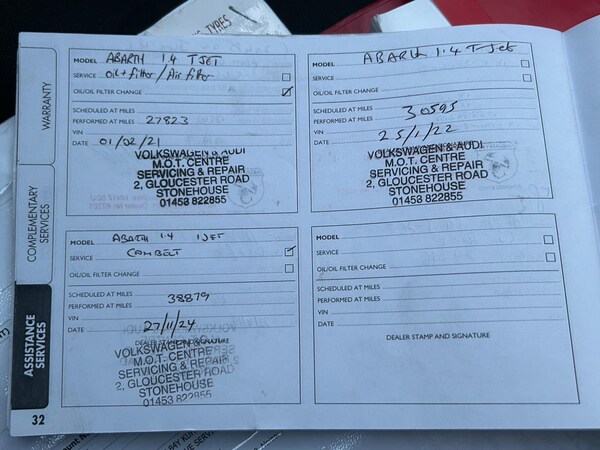 TYRES
WARRANTY
COMPLEMENTARY SERVICES
ASSISTANCE SERVICES
32
MODEL ABARTH 1.4 TJET
SERVICE oil + filter / Air filter
OIL/OIL FILTER CHANGE
SCHEDULED AT MILES
PERFORMED AT MILES 27823
VIN
DATE 01/02/21
VOLKSWAGEN & AUDI
M.O.T. CENTRE
SERVICING & REPAIR
2, GLOUCESTER ROAD
STONEHOUSE
01453 822855
MODEL ABARTH 1.4 T JET
SERVICE
OIL/OIL FILTER CHANGE
SCHEDULED AT MILES
PERFORMED AT MILES 30595
VIN
DATE 25/1/22
VOLKSWAGEN & AUDI
M.O.T. CENTRE
SERVICING & REPAIR
2, GLOUCESTER ROAD
STONEHOUSE
01453 822855
MODEL ABARTH 1.4 TJET
SERVICE CAMBELT
OIL/OIL FILTER CHANGE
SCHEDULED AT MILES
PERFORMED AT MILES 38879
VIN
DATE 27/11/24
VOLKSWAGEN & AUDI
M.O.T. CENTRE
SERVICING & REPAIR
2, GLOUCESTER ROAD
STONEHOUSE
01453 822855
MODEL
SERVICE
OIL/OIL FILTER CHANGE
SCHEDULED AT MILES
PERFORMED AT MILES
VIN
DATE
DEALER STAMP AND SIGNATURE